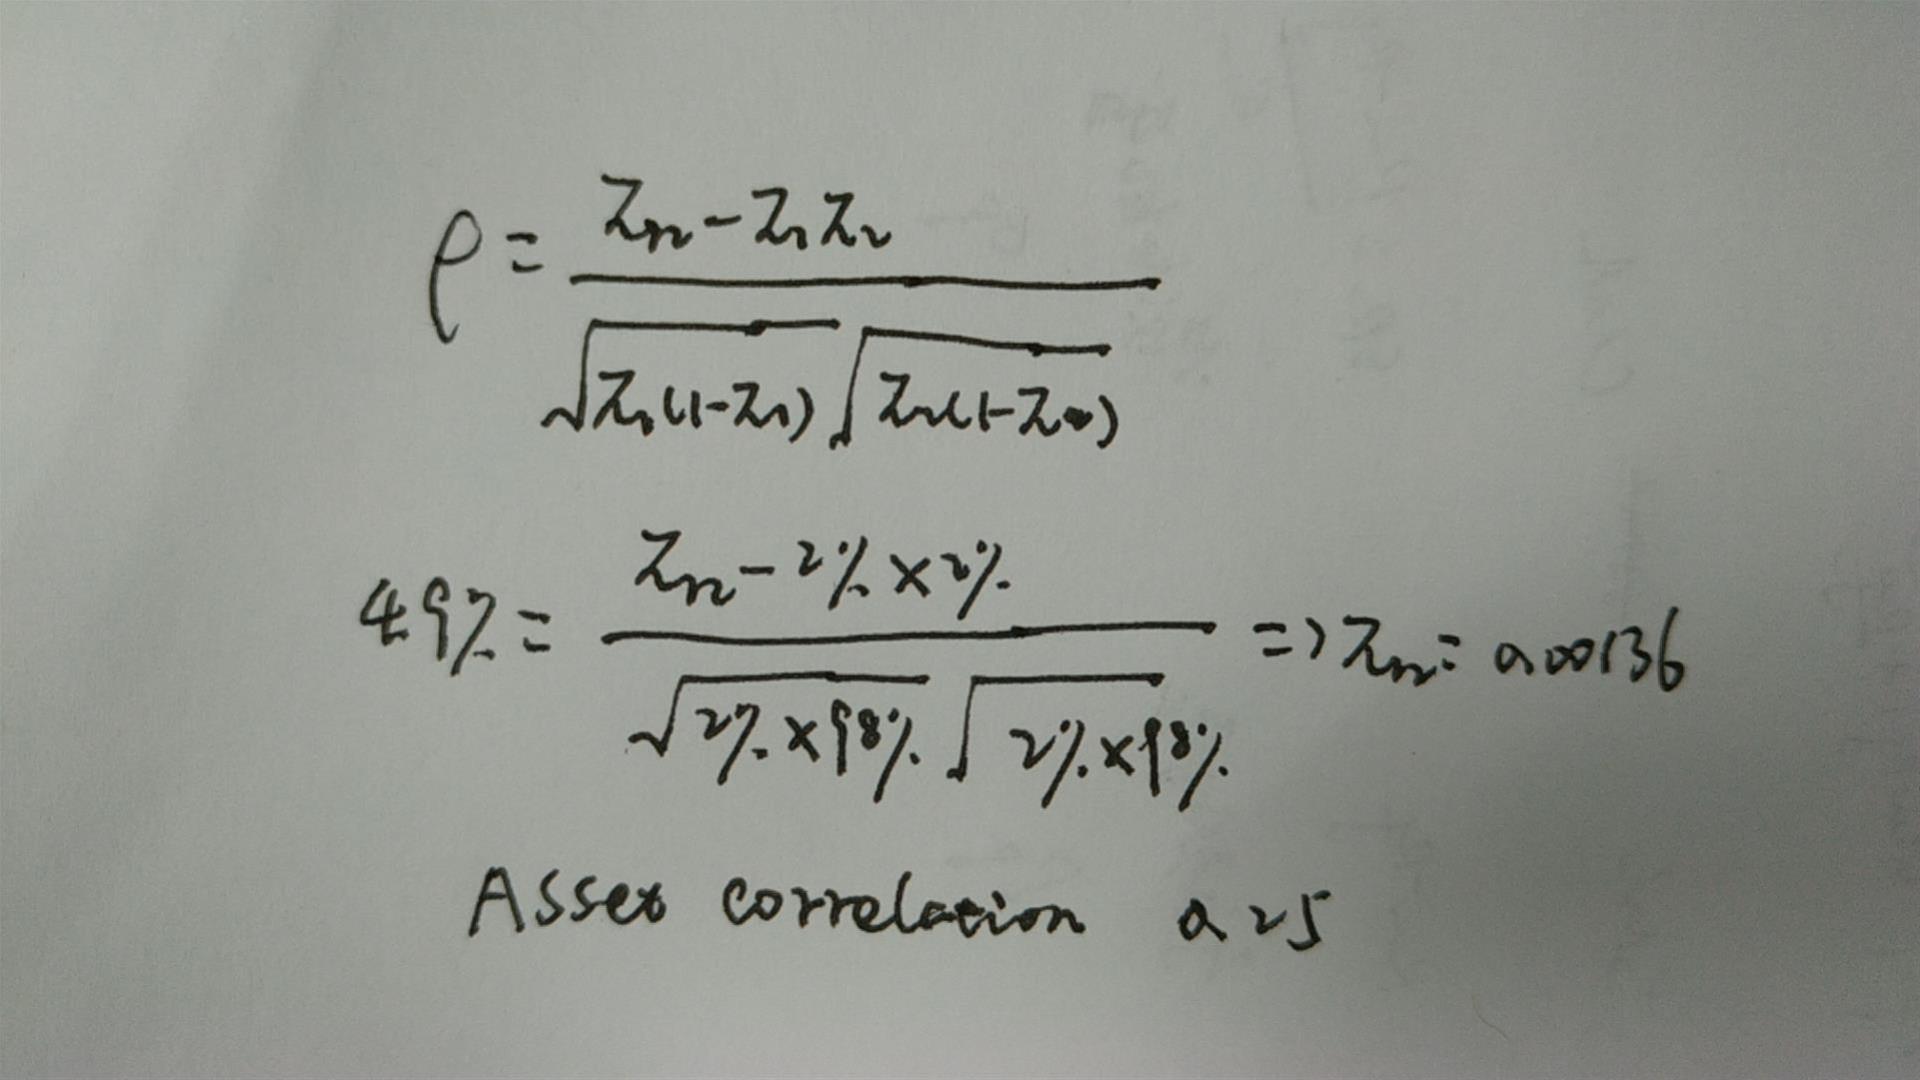 ρ = (Z₁₂ - Z₁Z₂) / (√(Z₁(1-Z₁)) √(Z₂(1-Z₂)))
49% = (Z₁₂ - 2% × 2%) / (√(2% × 98%) √(2% × 98%)) => Z₁₂ = 0.00136
Asset correlation 0.25